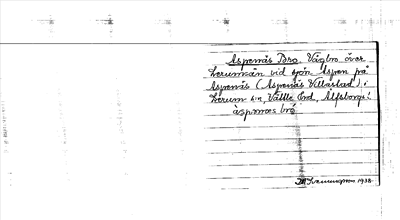 Aspenäs Bro. Vägbro över
Lerumån vid sjön Aspen på
Aspenäs (Aspenäs Villastad) i
Lerum sn, Vättle hd, Älfsborgs l.
àspənas brò
1938